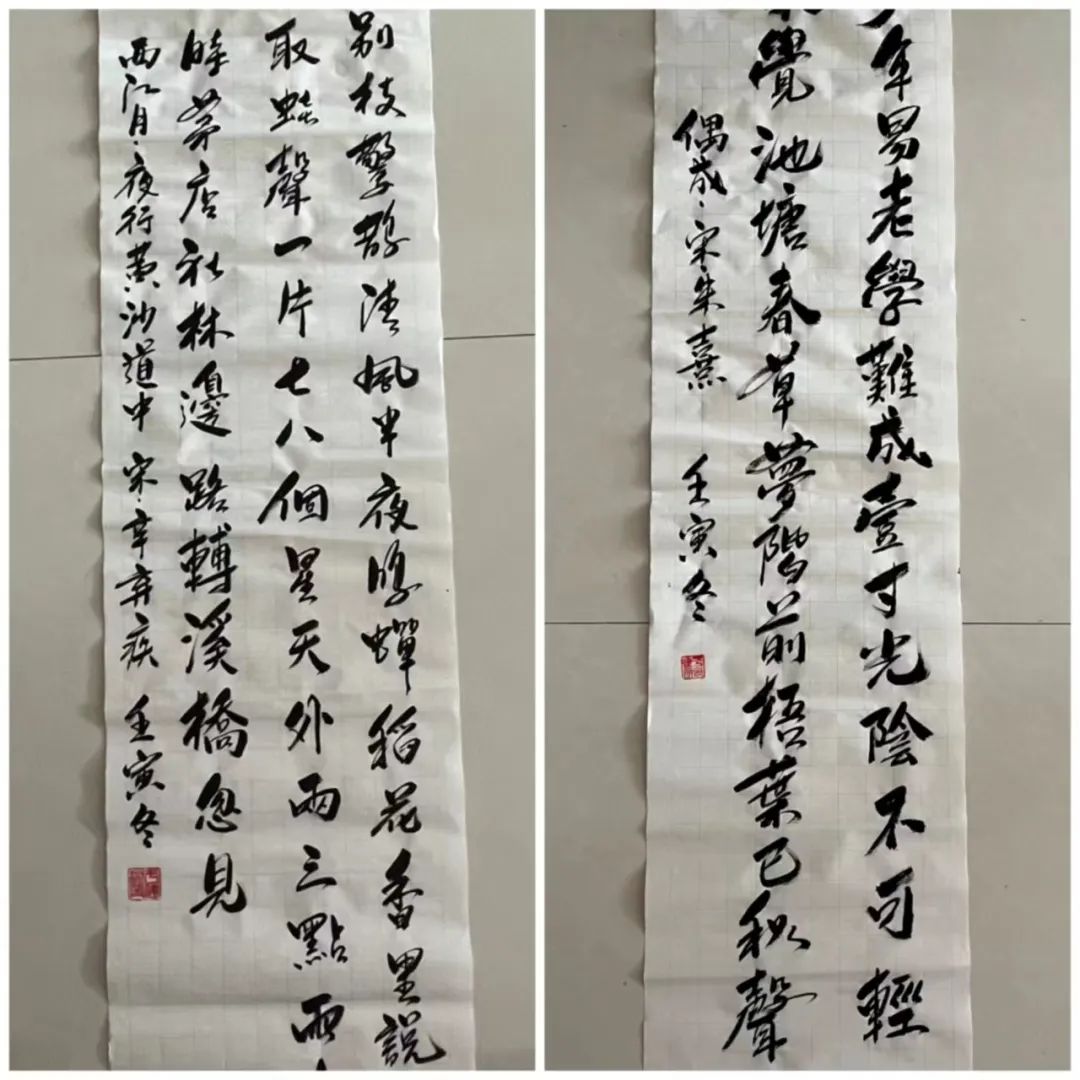 别枝驚鵲清風半夜鳴蟬稻花香里説
取蛙聲一片七八個星天外兩三點雨
時茅店社林邊路轉溪橋忽見
西江月·夜行黄沙道中 宋·辛弃疾 壬寅冬
年易老學難成壹寸光陰不可輕
覺池塘春草夢階前梧葉已秋聲
偶成·宋·朱熹 壬寅冬